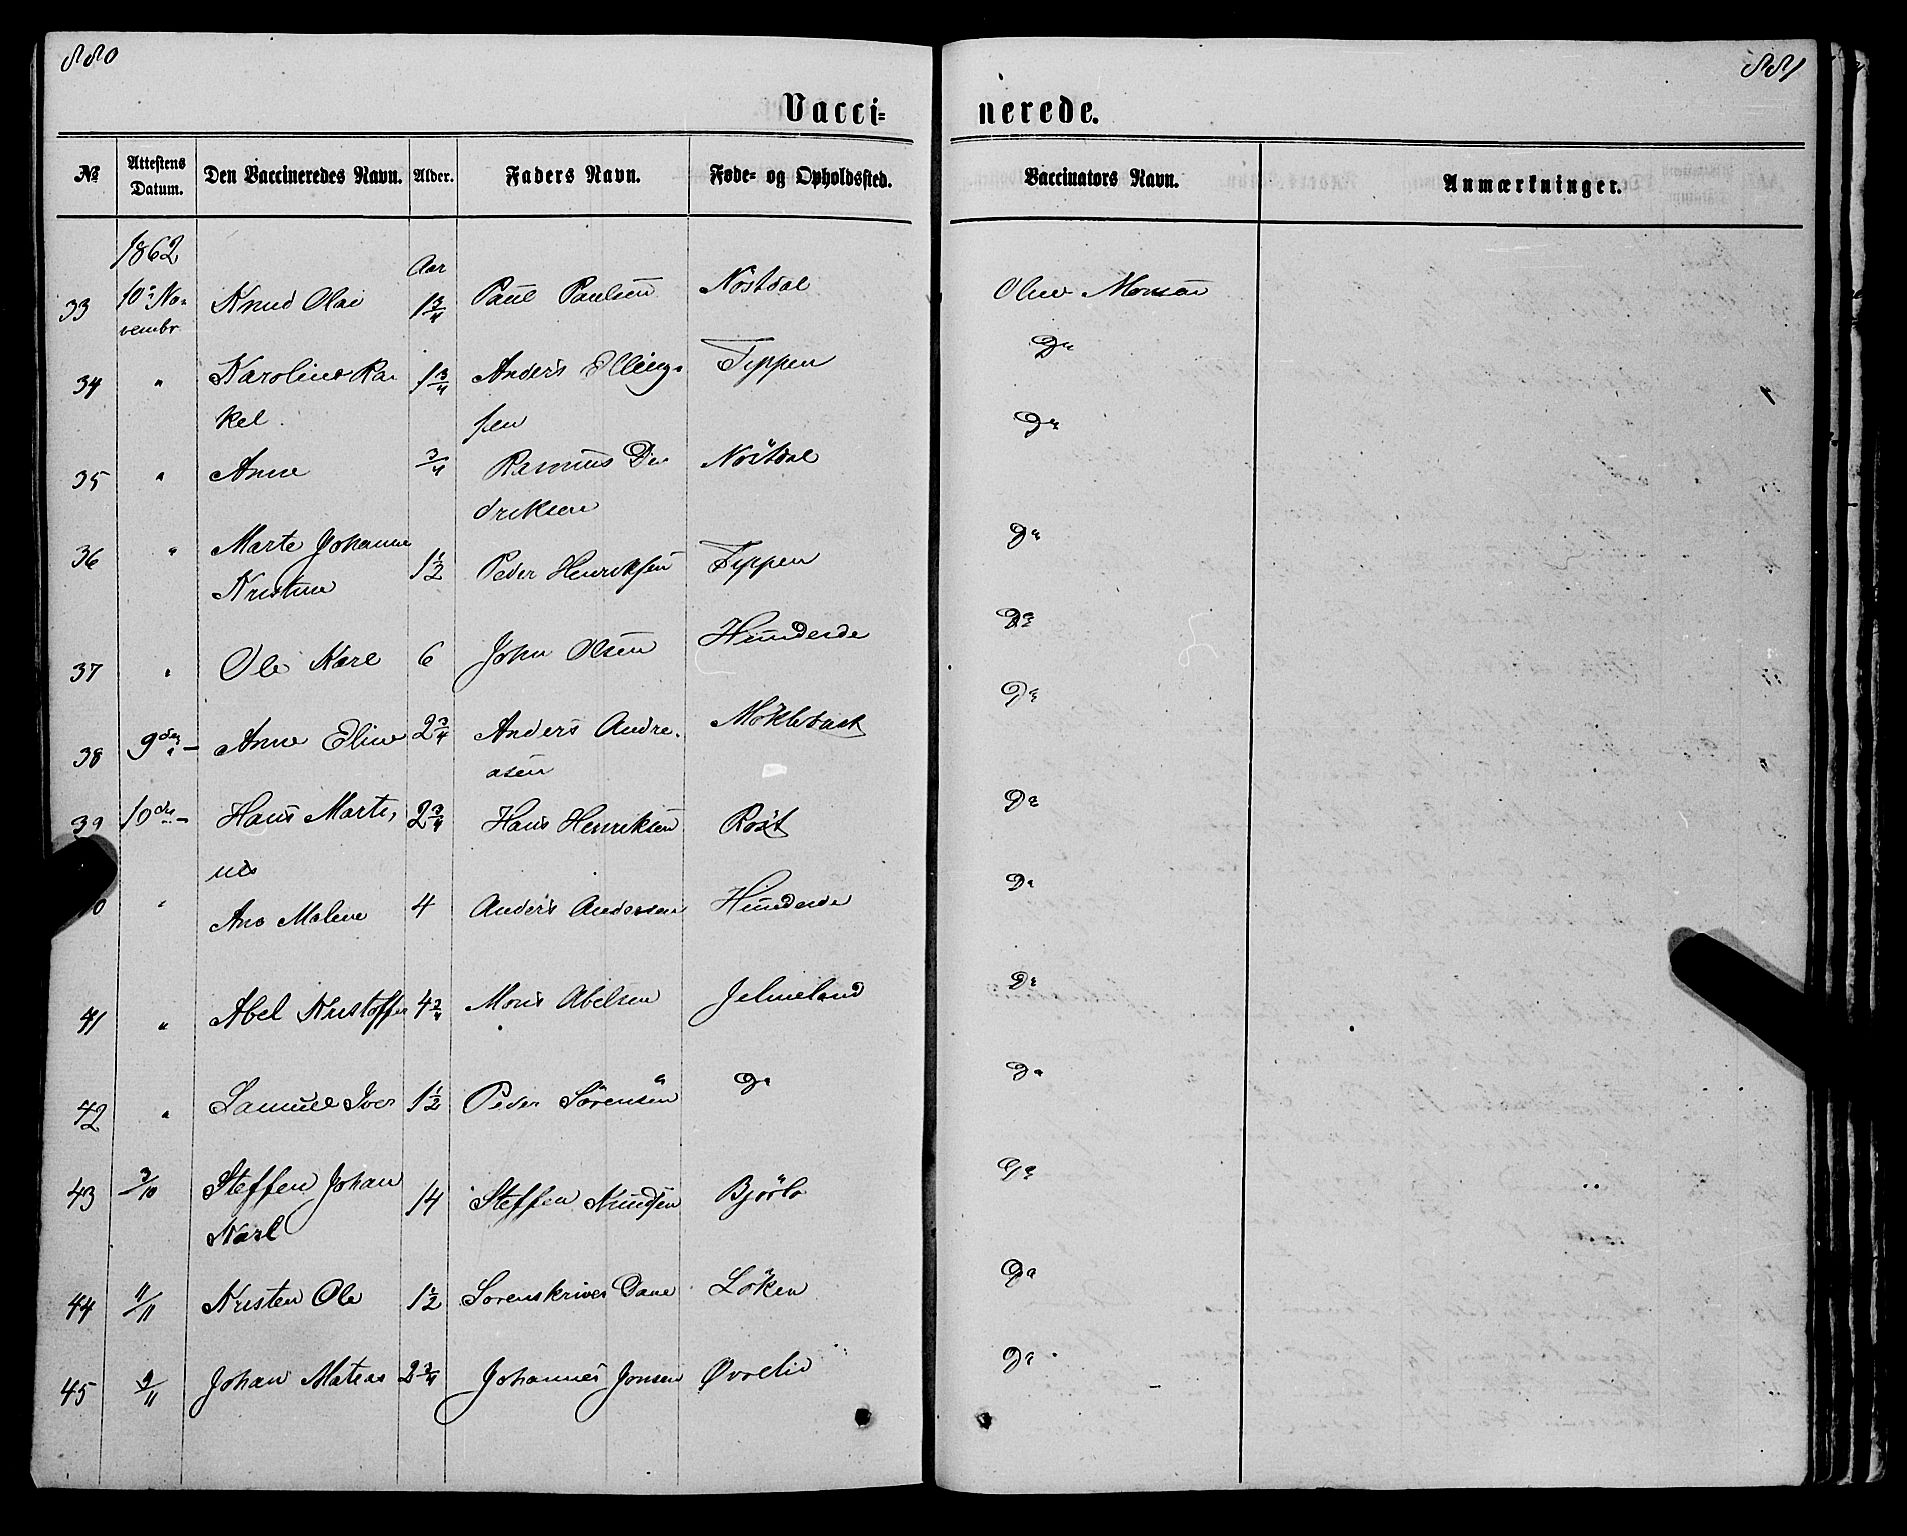 880
881
Vacci=
nerede.
№ Attestens Datum. Den Vaccineredes Navn. Alder. Faders Navn. Føde- og Opholdssted. Vaccinators Navn. Anmærkninger.
1862 Aar
33 10de No- Knud Olai 1 3/4 Paul Paulsen Nöstdal Oluv Monsen
vembr
34 " Karoline Ra- 1 3/4 Anders Elling- Tippen Do
kel. sen
35 " Anne 3/4 Rasmus Di- Nöstdal Do
driksen
36 " Marte Johanne 1 1/2 Peder Henriksen Tippen Do
Kristine
37 " Ole Karl 6 John Olsen Hundeide Do
38 9de " Anne Eline 2 3/4 Anders Andre- Möklebust Do
asen
39 10de " Hans Marti- 2 3/4 Hans Henriksen Röst Do
nus
0 " Ane Malene 4 Anders Andersen Hundeide Do
41 " Abel Kristoffer 4 3/4 Mons Abelsen Jelmeland Do
42 " Samuel Iver 1 1/2 Peder Sörensen Do Do
43 3/10 Steffen Johan 14 Steffen Knudsen Bjørlo Do
Karl
44 11/11 Kristen Ole 1 1/2 Sorenskriver Dane Löken Do
45 9/11 Johan Matias 2 3/4 Johannes Jonsen Øvrelid Do